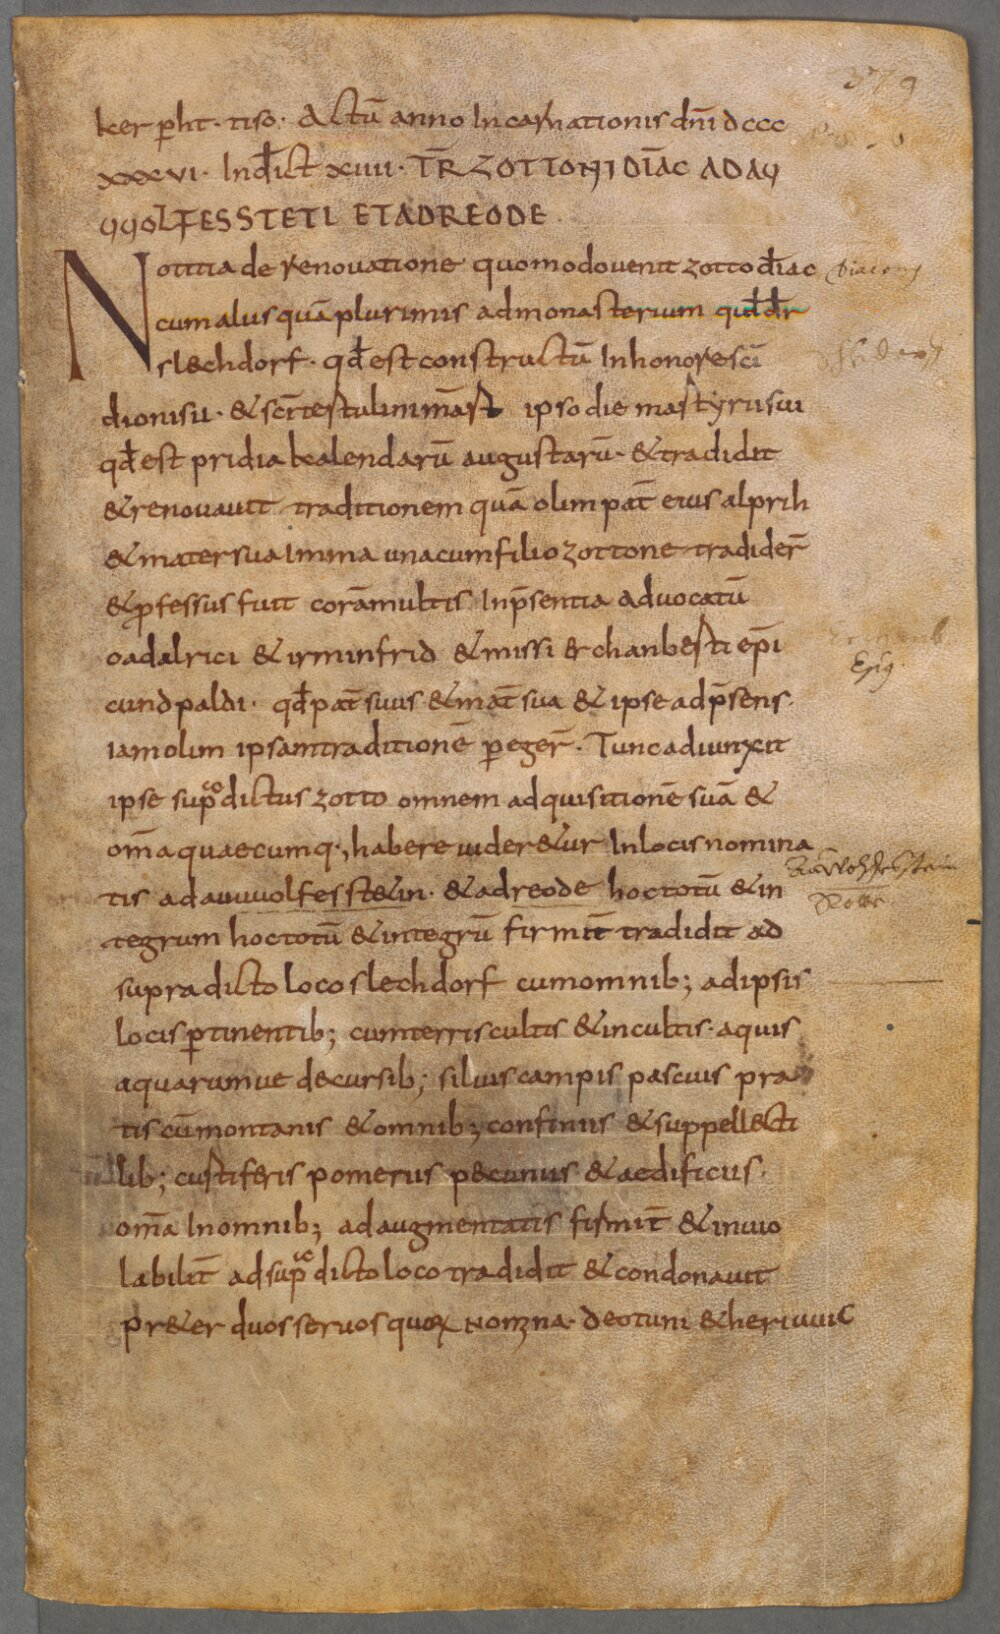 379
ker p̄ht · tiso · Actū anno Incarnationis dn̄i dccc
xxxvi · Ind̄ict xiiii · TR̄ ZOTTONI DIĀC AD AU
UUOLFESSTETI ET AD REODE
Notitia de renovatione quomodo venit zotto d̄iac
cum aliis quā plurimis ad monasterium qd̄ d̄r
slechdorf · qd̄ est constructū In honore sc̄i
dionisii · & sc̄i
ipso die martyrii sui
qd̄ est pridia kalendarū augustarū · & tradidit
& renovavit traditionem quā olim pat̄ eius alprih
& mater sua Imma una cum filio zottone tradider̄
& ꝓfessus fuit corā multis In p̄sentia advocatū
oadalrici & irminfrid & missi erchanberti ep̄i
cundpaldi · qd̄ pat̄ suus & mat̄ sua & ipse ad p̄sens ·
iam olim ipsam traditionē peger̄ · Tunc adiunxit
ipse supͣdictus zotto omnem adquisitionē suā &
om̄a quaecumq· habere videretur In locis nomina
tis ad auuuolfesstetin · & ad reode hoc totū & in
tegrum hoc totū & integrū firmit̄ tradidit ad
supradicto loco slechdorf cum omnib; ad ipsis
locis ꝑtinentib; cum terris cultis & incultis · aquis
aquarumve decursib; silvis campis pascuis pra
tis cū montanis & omnib; confiniis & suppellecti
lib; custiferis pomeriis pecuniis & aedificiis ·
om̄a In omnib; ad augmentatis firmit̄ & invio
labilit̄ ad supͣdicto loco tradidit & condonavit
pr&er duos servos quoꝝ nomina · deotuni & heriuuic
diaconj
Epis
Rawolfestain
Rode